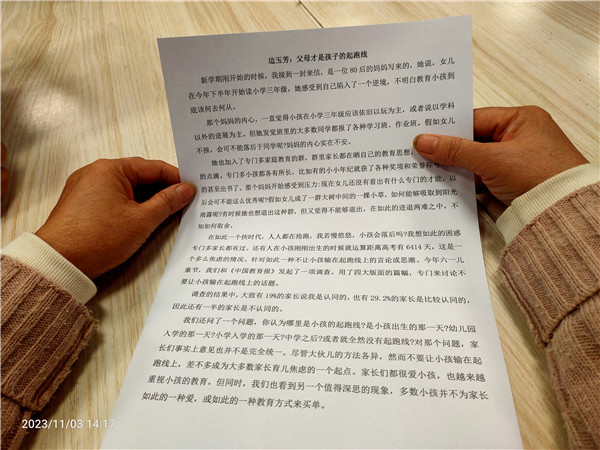 边玉芳：父母才是孩子的起跑线
新学期刚开始的时候，我接到一封来信，是一位80后的妈妈写来的，她说，女儿
在今年下半年开始读小学三年级，她感受到自己陷入了一个逆境，不明白教育小孩到
底该何去何从。
那个妈妈的内心，一直觉得小孩在小学三年级应该依旧以玩为主，或者说以学科
以外的进展为主。但她发觉班里的大多数同学都报了各种学习班、作业班，假如女儿
不报，会可不能落后于同学呢?妈妈的内心实在不安。
她也加入了专门多家庭教育的群，群里家长都在晒自己的教育思想、
的点滴，专门多小孩都各有所长，比如有的小小年纪就获了各种奖项和荣誉称号
的甚至出书了。那个妈妈开始感受到压力:现在女儿还没有看出有什么专门的才能，以
后会可不能这么优秀呢?假如女儿成了一群大树中间的一棵小草，如何能够吸取到阳光
雨露呢?有时候她也想退出这种群，但又觉得不能够退出，在如此的进退两难之中，不
知如何取舍。
在如此一个快时代，人人都在抢跑，我若慢悠悠，小孩会落后吗?我想如此的困惑
专门多家长都有过，还有人在小孩刚刚出生的时候就运算距离高考有6414天，这是一
个多么焦虑的情况。针对如此一种不让小孩输在起跑线上的言论或思潮，今年六一儿
童节，我们和《中国教育报》发起了一项调查，用了四大版面的篇幅，专门来讨论不
要让小孩输在起跑线上的话题。
调查的结果中，大致有19%的家长说我是认同的，也有29.2%的家长是比较认同的，
因此还有一半的家长是不认同的。
我们还问了一个问题，你认为哪里是小孩的起跑线?是小孩出生的那一天?幼儿园
入学的那一天?小学入学的那一天?中学之后?或者就全然没有起跑线?对那个问题，家
长们事实上意见也并不是完全统一。尽管大伙儿的方法各异，然而不要让小孩输在起
跑线上，差不多成为大多数家长育儿焦虑的一个起点。家长们都很爱小孩，也越来越
重视小孩的教育。但同时，我们也看到另一个值得深思的现象，多数小孩并不为家长
如此的一种爱，或如此的一种教育方式来买单。
2023/11/03 14:17